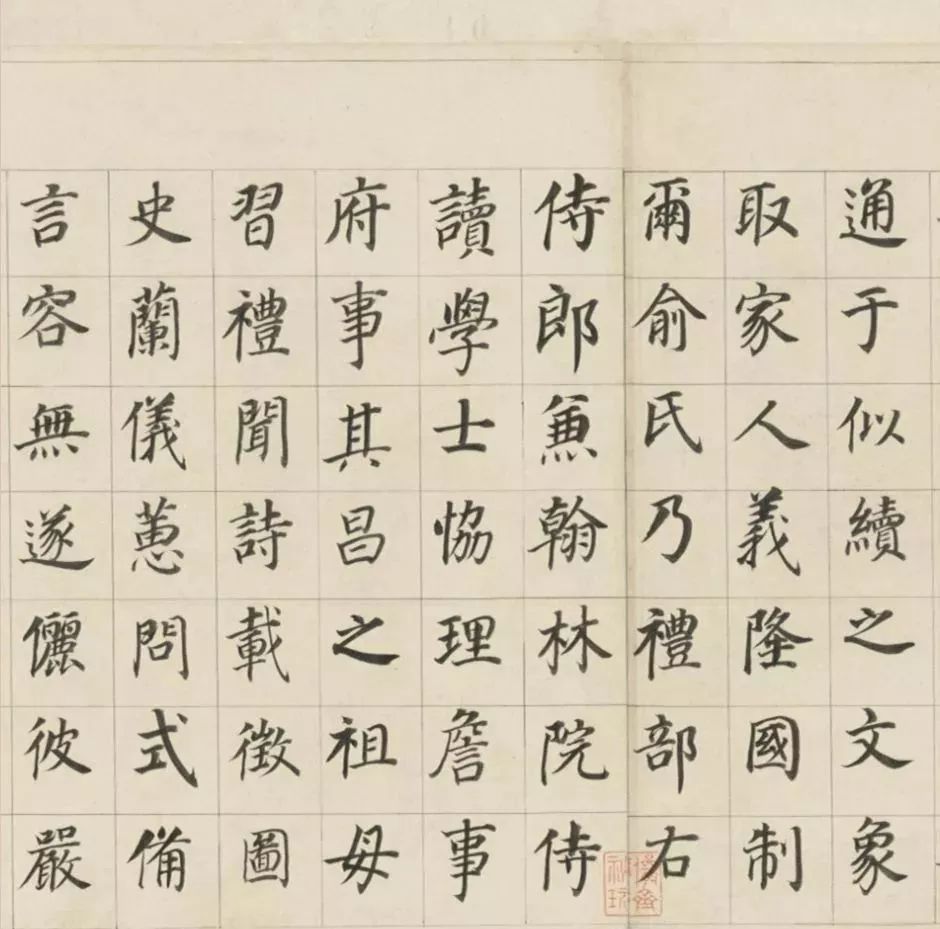 通于似續之文象
取家人義隆國制
爾俞氏乃禮部右
侍郎兼翰林院侍
讀學士協理詹事
府事其昌之祖母
習禮聞詩載徵圖
史蘭儀蕙問式備
言容無遂儷彼嚴